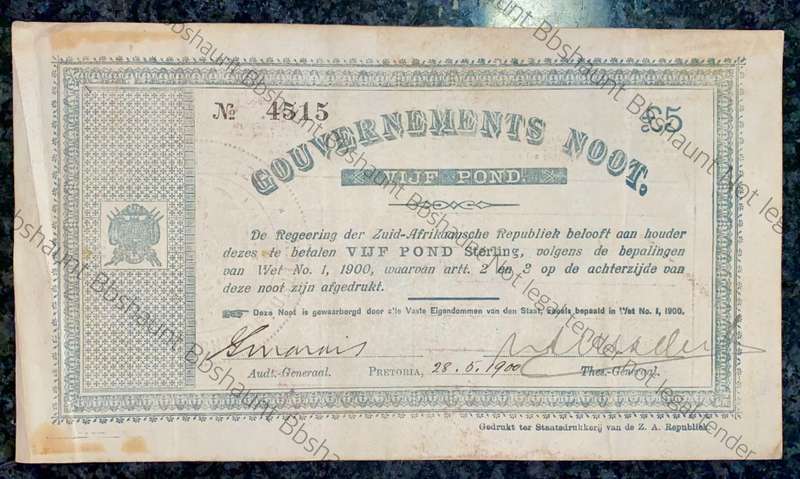 № 4515
£5
GOUVERNEMENTS NOOT.
VIJF POND
De Regeering der Zuid-Afrikaansche Republiek belooft aan houder
dezes te betalen VIJF POND Sterling, volgens de bepalingen
van Wet No. 1, 1900, waarvan artt. 2 en 3 op de achterzijde van
deze noot zijn afgedrukt.
Deze Noot is gewaarborgd door alle Vaste Eigendommen van den Staat, zooals bepaald in Wet No. 1, 1900.
Audt.-Generaal. PRETORIA, 28.5.1900 Thes.-Generaal.
Gedrukt ter Staatsdrukkerij van de Z. A. Republiek
Bbshaunt Bbshaunt Bbshaunt Bbshaunt Not legal tender
Bbshaunt Bbshaunt Bbshaunt Not legal tender Not legal tender